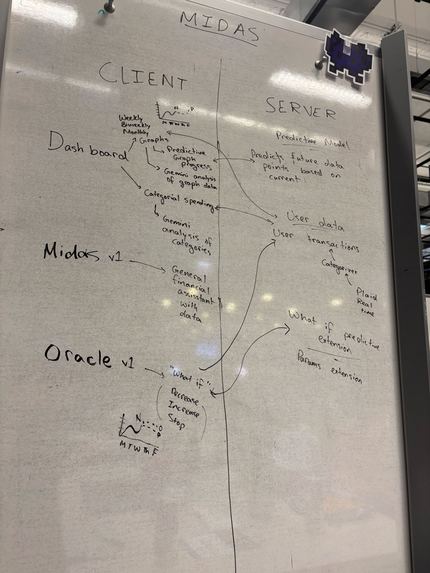 MIDAS
CLIENT
Weekly
Biweekly
Monthly
Graphs
Dashboard
Predictive
Graph
Progress
Gemini analysis
of graph data
Categorial spending
Gemini
analysis of
categories
Midas v1
General
financial
assistant
with
data
Oracle v1
"What if"
Decrease
Increase
Stop
N
M T W Th F
SERVER
Predictive Model
Predicts future data
points based on
current
User data
User transactions
Categorizer
Plaid
Real
time
What if predictive
extension
Params extension